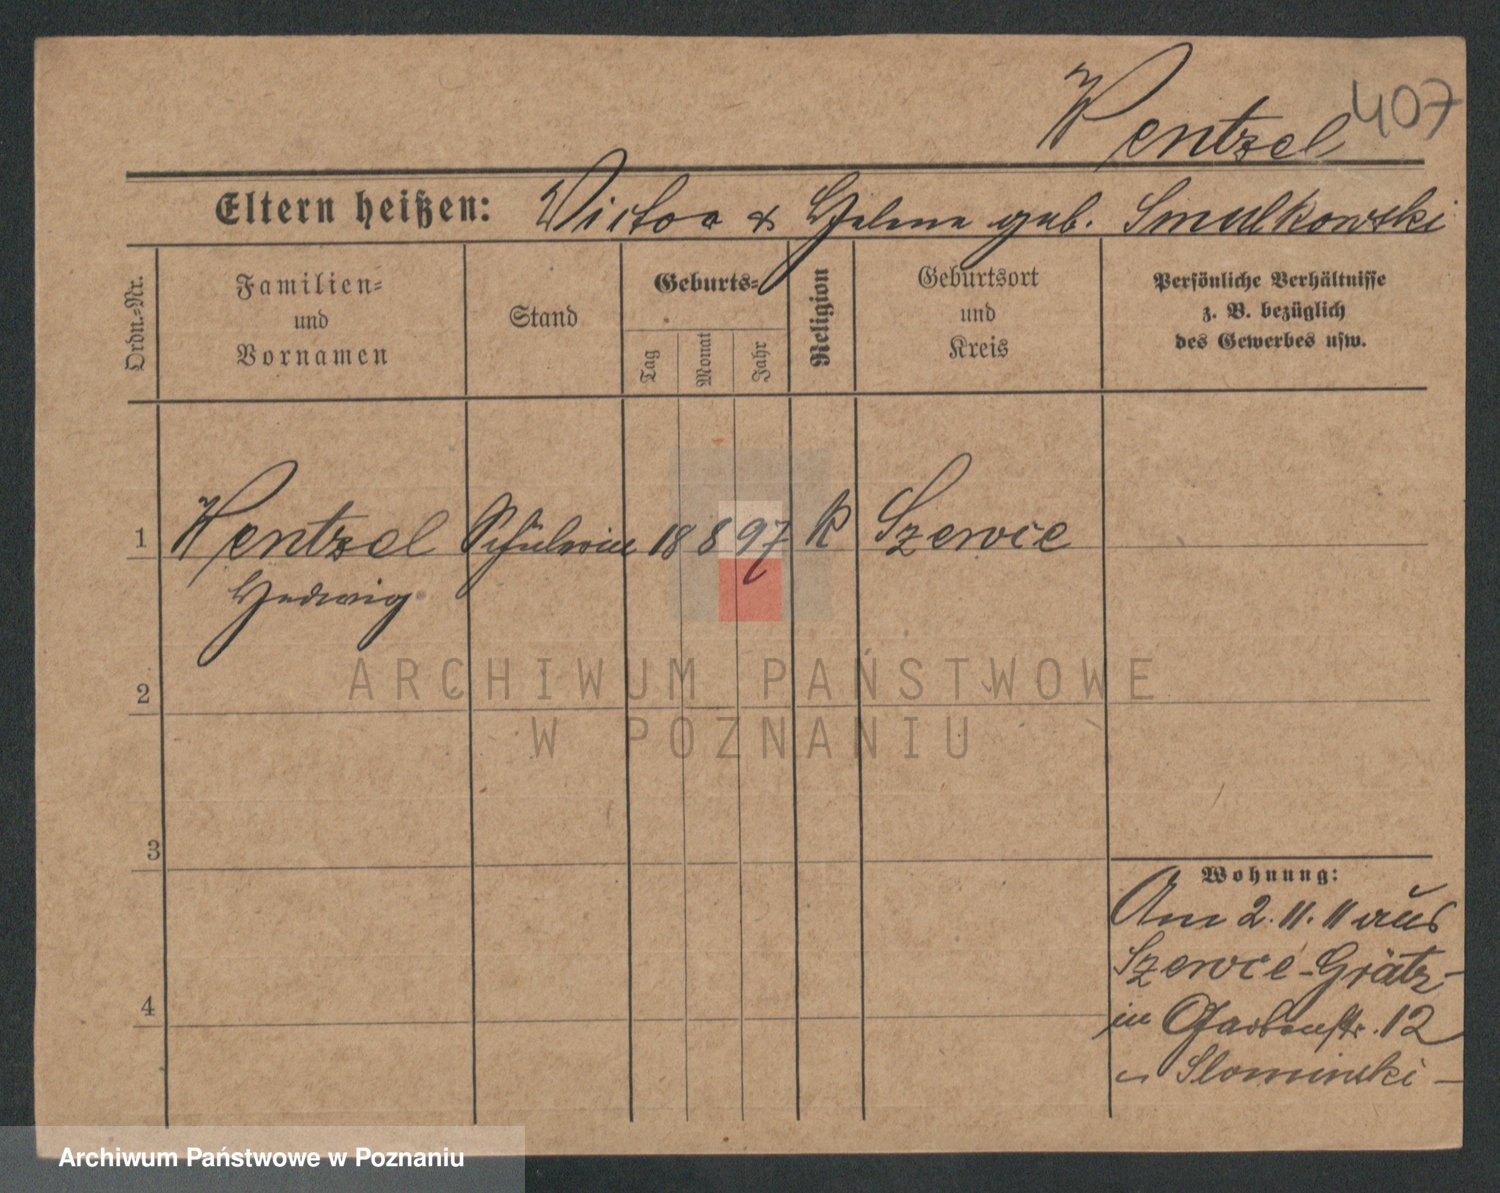 407
Wentzel
Eltern heißen: Victor & Helene geb. Smulkowski
Ordn.-Nr.
Familien-
und
Vornamen
Stand
Geburts-
Tag
Monat
Jahr
Religion
Geburtsort
und
Kreis
Persönliche Verhältnisse
z. B. bezüglich
des Gewerbes usw.
1 Wentzel Schülerin 18 8 97 K Szewce
Hedwig
2
3
4
Wohnung:
Am 2. 11. 11 aus
Szewce-Grätz-
in Gartenstr. 12
Slominski -
ARCHIWUM PAŃSTWOWE
W POZNANIU
Archiwum Państwowe w Poznaniu